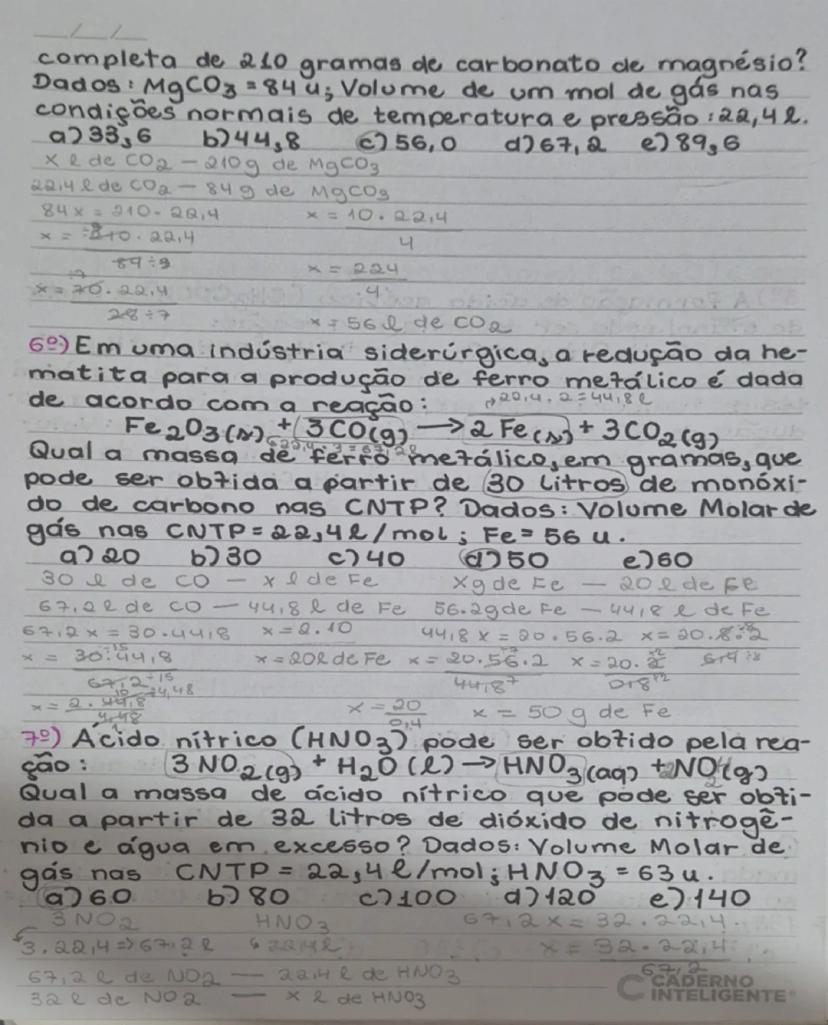 completa de 210 gramas de carbonato de magnésio?
Dados: MgCO3 = 84 u; Volume de um mol de gás nas
condições normais de temperatura e pressão: 22,4 l.
a) 33,6 b) 44,8 c) 56,0 d) 67,2 e) 89,6
x l de CO2 — 210g de MgCO3
22,4 l de CO2 — 84 g de MgCO3
84x = 210 . 22,4 x = 10 . 22,4
x = 210 . 22,4 4
84 ÷3 x = 224
x = 70 . 22,4 4
28 ÷7 x = 56 l de CO2
6º) Em uma indústria siderúrgica, a redução da he-
matita para a produção de ferro metálico é dada
de acordo com a reação: 22,4 . 2 = 44,8 l
Fe2O3(s) + 3CO(g) → 2 Fe(s) + 3CO2(g)
22,4 . 3 = 67,2 l
Qual a massa de ferro metálico, em gramas, que
pode ser obtida a partir de 30 Litros de monóxi-
do de carbono nas CNTP? Dados: Volume Molar de
gás nas CNTP = 22,4 l/mol; Fe = 56 u.
a) 20 b) 30 c) 40 d) 50 e) 60
30 l de CO — x l de Fe xg de Fe — 20 l de Fe
67,2 l de CO — 44,8 l de Fe 56.2g de Fe — 44,8 l de Fe
67,2 x = 30 . 44,8 x = 2 . 10 44,8 x = 20 . 56 . 2 x = 20 . 8 . 2
x = 30 . 44,8 x = 20 l de Fe x = 20 . 56 . 2 x = 20 . 2 6,4 ÷8
67,2 ÷15 44,8 ÷7 0,8 ÷2
x = 2 . 44,8 x = 20 x = 50 g de Fe
4,48 0,4
7º) Ácido nítrico (HNO3) pode ser obtido pela rea-
ção: 3 NO2(g) + H2O(l) → HNO3(aq) + NO(g)
Qual a massa de ácido nítrico que pode ser obti-
da a partir de 32 litros de dióxido de nitrogê-
nio e água em excesso? Dados: Volume Molar de
gás nas CNTP = 22,4 l/mol; HNO3 = 63 u.
a) 60 b) 80 c) 100 d) 120 e) 140
3 NO2 HNO3 67,2 x = 32 . 22,4
3 . 22,4 => 67,2 l 22,4 l x = 32 . 22,4
67,2 l de NO2 — 22,4 l de HNO3 67,2
32 l de NO2 — x l de HNO3
CADERNO
INTELIGENTE